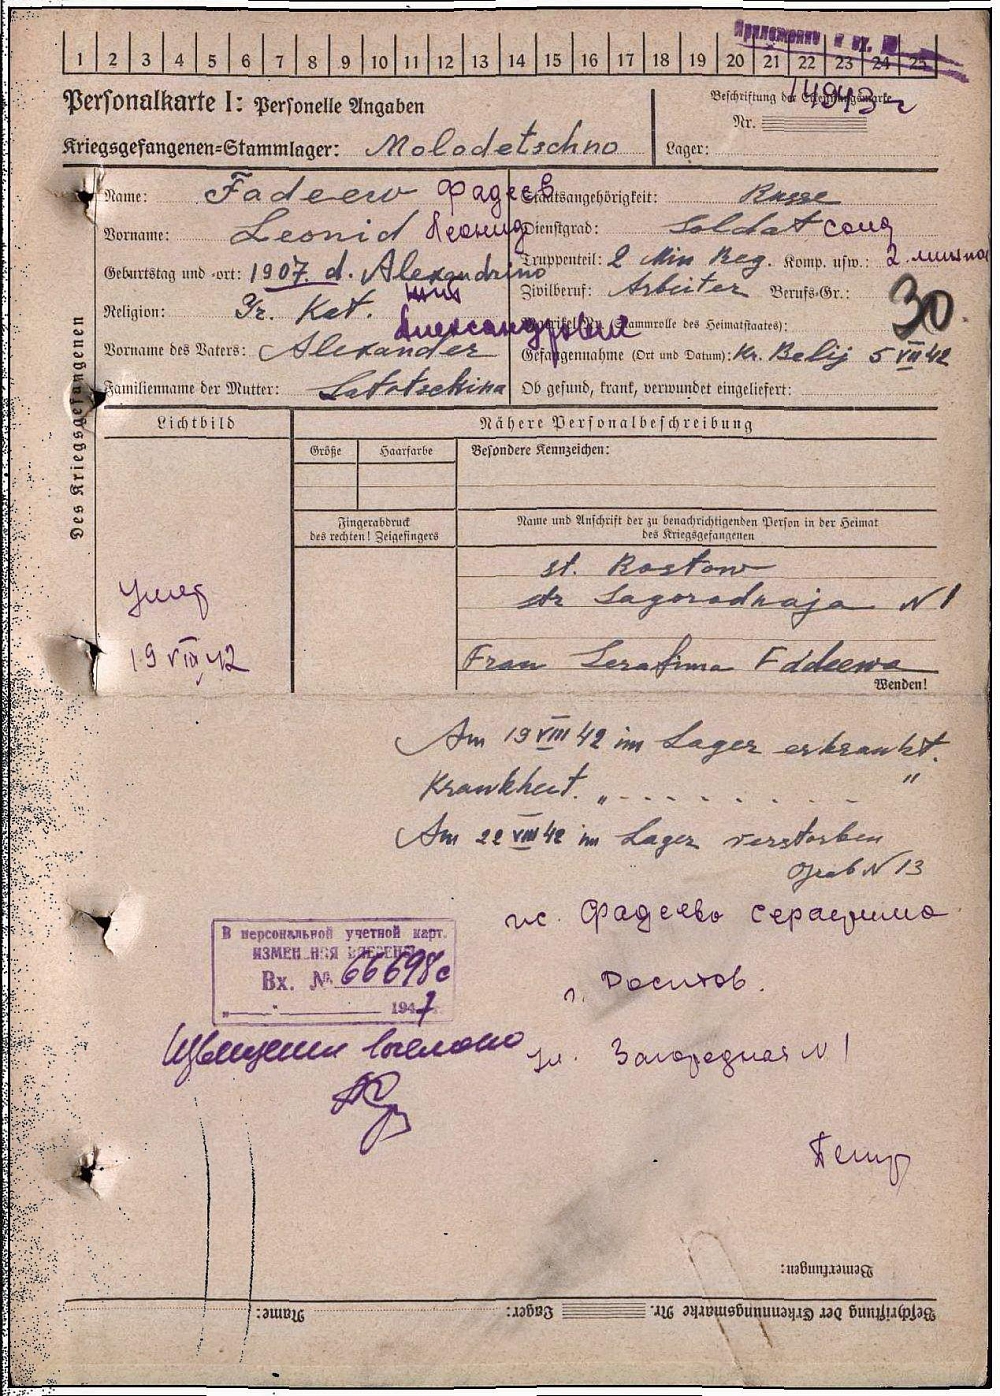 Приложение к вх. №
1 2 3 4 5 6 7 8 9 10 11 12 13 14 15 16 17 18 19 20 21 22 23 24 25
14943 г
Personalkarte I: Personelle Angaben
Beschriftung der Erkennungsmarke
Nr.
Kriegsgefangenen-Stammlager: Molodetschno
Lager:
Des Kriegsgefangenen
Name: Fadeew Фадеев
Vorname: Leonid Леонид
Geburtstag und -ort: 1907. d. Alexandrino
Religion: Gr. Kat.
Александрович
Vorname des Vaters: Alexander
Familienname der Mutter:
Staatsangehörigkeit: Russe
Dienstgrad: Soldat солд
Truppenteil: 2 Min Reg. Komp. usw.: 2. мином
Zivilberuf: Arbeiter Berufs-Gr.:
30
Matrikel Nr. (Stammrolle des Heimatstaates):
Gefangennahme (Ort und Datum): Kr. Belij 5 VII 42
Ob gesund, krank, verwundet eingeliefert:
Lichtbild
Nähere Personalbeschreibung
Größe
Haarfarbe
Besondere Kennzeichen:
Fingerabdruck
des rechten! Zeigefingers
Name und Anschrift der zu benachrichtigenden Person in der Heimat
des Kriegsgefangenen
st. Rostow
str Sagorodnaja N 1
Frau Serafima Fadeewa
Wenden!
Умер
19 VIII 42
Am 19 VIII 42 im Lager erkrankt.
Krankheit. „ - - - - - - - - "
Am 22 VIII 42 im Lager verstorben
Grab N 13
В персональной учетной карт.
ИЗМЕНЕНИЯ ВНЕСЕНЫ
Вх. № 66698с
„ " 1947
ж. Фадеева Серафима
г. Ростов.
ул. Загородная N 1
Bemerkungen:
Name:
Lager:
Beschriftung der Erkennungsmarke Nr.